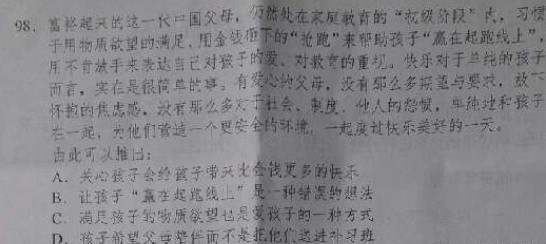 98. 富裕起来的这一代中国父母，仍然处在家庭教育的“初级阶段”内，习惯
于用物质欲望的满足、用金钱砸下的“抢跑”来帮助孩子“赢在起跑线上”，
用不肯放手来表达自己对孩子的爱、对教育的重视。快乐对于单纯的孩子
而言，实在是很简单的事。有爱心的父母，没有那么多期望与要求，放下
怀抱的焦虑感，没有那么多对于社会、制度、他人的怨恨，单纯地和孩子
在一起，为他们营造一个更安全的环境，一起度过快乐美好的一天。
由此可以推出：
A. 关心孩子会给孩子带来比金钱更多的快乐
B. 让孩子“赢在起跑线上”是一种错误的想法
C. 满足孩子的物质欲望也是爱孩子的一种方式
D. 孩子希望父母陪伴而不是把他们送进补习班